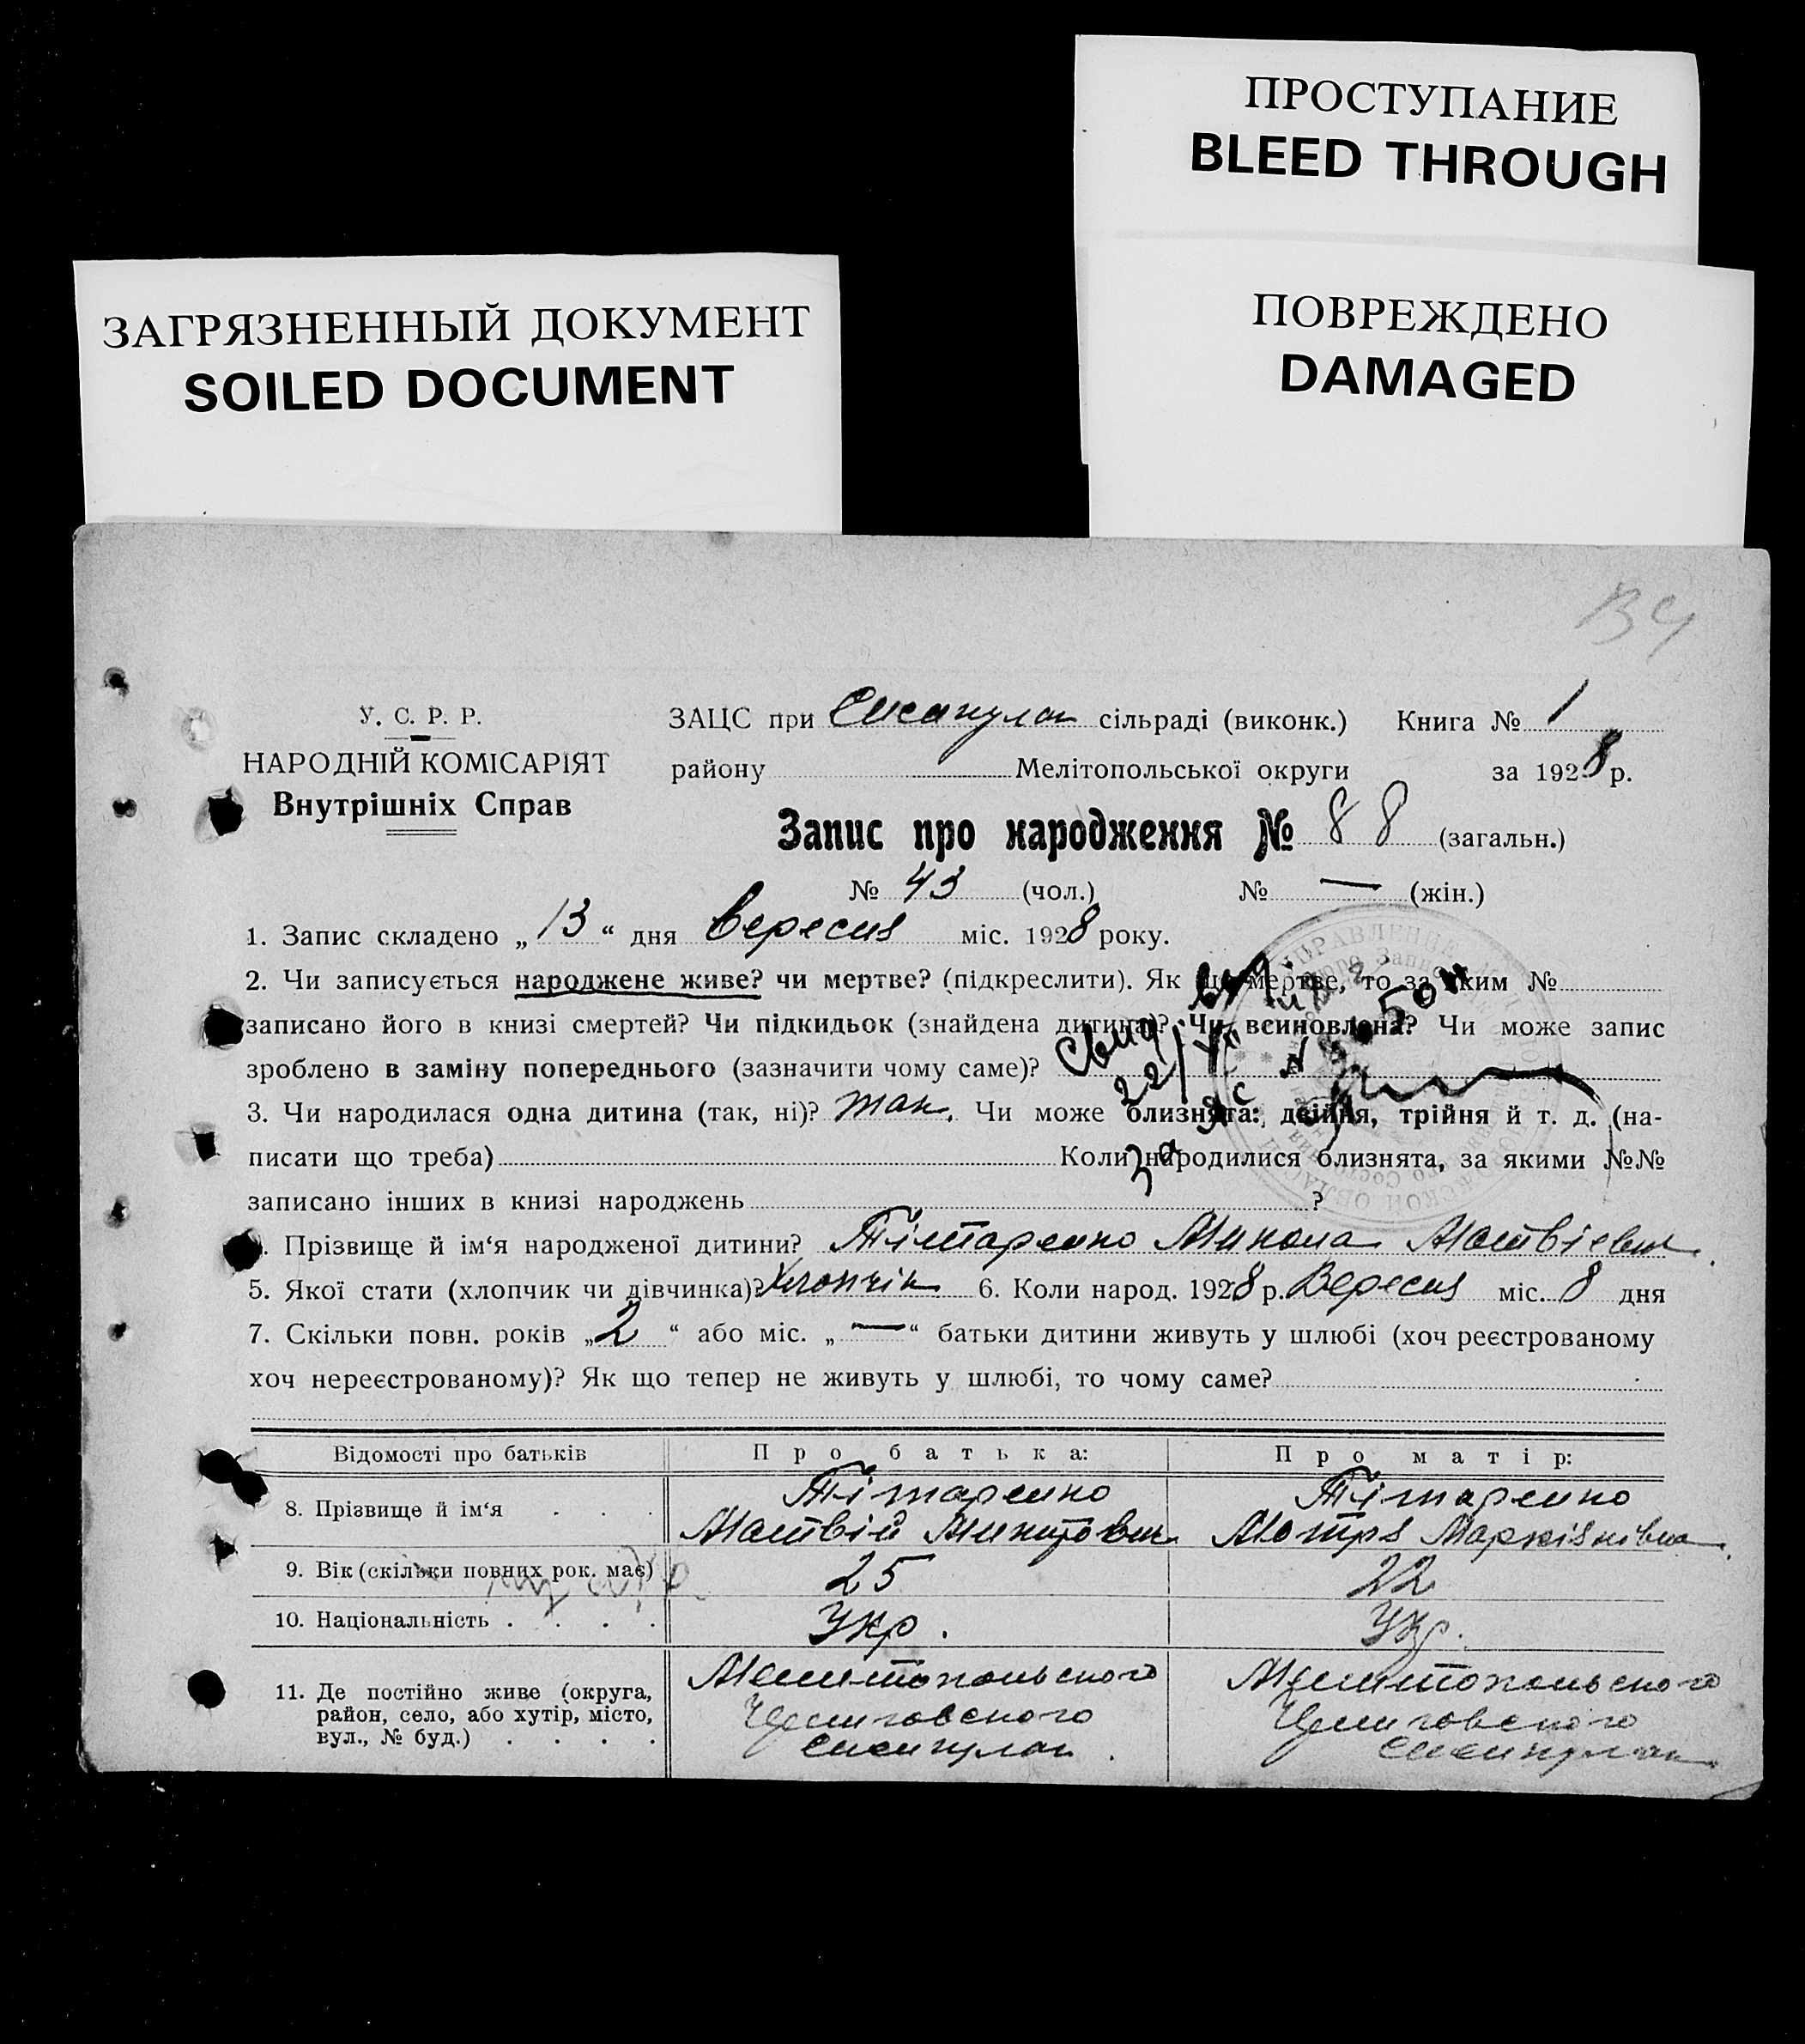 ПРОСТУПАНИЕ
BLEED THROUGH
ЗАГРЯЗНЕННЫЙ ДОКУМЕНТ
SOILED DOCUMENT
ПОВРЕЖДЕНО
DAMAGED
У. С. Р. Р.
НАРОДНІЙ КОМІСАРІЯТ
Внутрішніх Справ
ЗАЦС при сільраді (виконк.) Книга № 1
району Мелітопольської округи за 1928 р.
Запис про народження № 88 (загальн.)
№ 43 (чол.) № — (жін.)
1. Запис складено „13“ дня Вересня міс. 1928 року.
2. Чи записується народжене живе? чи мертве? (підкреслити). Як що мертве, то за яким №
записано його в книзі смертей? Чи підкидьок (знайдена дитина)? Чи всиновлена? Чи може запис
зроблено в заміну попереднього (зазначити чому саме)?
3. Чи народилася одна дитина (так, ні)? так. Чи може близнята: двійня, трійня й т. д. (на-
писати що треба) Коли народилися близнята, за якими №№
записано інших в книзі народжень ?
. Прізвище й ім‘я народженої дитини? Тітаренко Микола Матвієвич
5. Якої стати (хлопчик чи дівчинка)? Хлопчік 6. Коли народ. 1928 р. Вересня міс. 8 дня
7. Скільки повн. років „2“ або міс. „—“ батьки дитини живуть у шлюбі (хоч реєстрованому
хоч нереєстрованому)? Як що тепер не живуть у шлюбі, то чому саме?
Відомості про батьків Про батька: Про матір:
8. Прізвище й ім‘я . . . Тітаренко Тітаренко
Матвій Мотря
9. Вік (скільки повних рок. має) 25 22
10. Національність . . . . Укр. Укр.
11. Де постійно живе (округа, район, село, або хутір, місто, вул., № буд.) . . . . Мелитопольского Мелитопольского